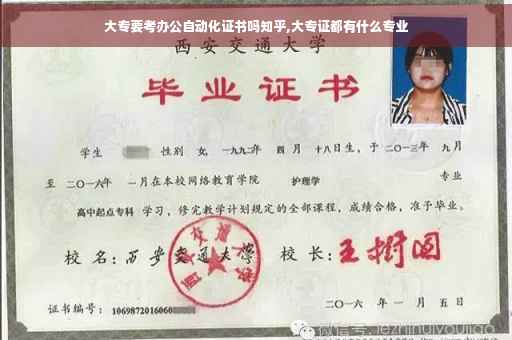 大专要考办公自动化证书吗知乎,大专证都有什么专业
西安交通大学
毕业证书
学生 性别 女,一九九二年 四月 十八日生,于二〇一三年 九月
至 二〇一六年 一月在本校网络教育学院 护理学 专业
高中起点专科 学习,修完教学计划规定的全部课程,成绩合格,准予毕业。
校名:西安交通大学 校长:王树国
西安交通大学
证书编号:1069872016060
二〇一六年 一月五日
微信号:jiezhihuiyoujiao